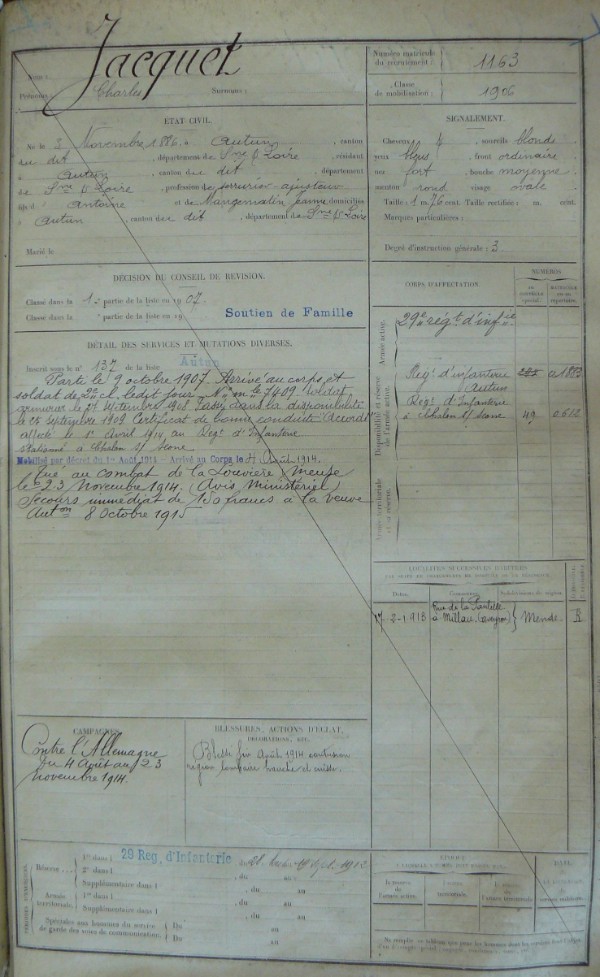 Jacquet
Nom :
Prénoms : Charles Surnoms :
Numéro matricule du recrutement : 1163
Classe de mobilisation : 1906
ÉTAT CIVIL.
Né le 3 Novembre 1886, à Autun, canton
dudit, département de Sne & Loire, résidant
à Autun, canton de dit, département
de Sne & Loire, profession de serrurier ajusteur
fils d' Antoine et de Mangematin Jeanne domiciliés
à Autun, canton de dit, département de Sne & Loire
Marié le
SIGNALEMENT.
Cheveux et sourcils blonds
yeux bleus, front ordinaire
nez fort, bouche moyenne
menton rond visage ovale
Taille : 1 m. 76 cent. Taille rectifiée : m. cent.
Marques particulières :
Degré d'instruction générale : 3
DÉCISION DU CONSEIL DE RÉVISION.
Classé dans la 1e partie de la liste en 1907.
Classé dans la e partie de la liste en 19
Soutien de Famille
DÉTAIL DES SERVICES ET MUTATIONS DIVERSES.
Inscrit sous le n° 137 de la liste Autun
Parti le 9 octobre 1907. Arrivé au corps et
soldat de 2e cl. ledit jour. N° mle 7409. Soldat
armurier le 21 septembre 1908. Passé dans la disponibilité
le 25 septembre 1909. Certificat de bonne conduite "Accordé"
affecté le 1er Avril 1914 au Régt d'Infanterie
stationné à Chalon s/ Saone
Mobilisé par décret du 1er Août 1914 - Arrivé au Corps le 4 Août 1914.
Tué au combat de la Louvière Meuse
le 23 Novembre 1914. (Avis Ministériel)
Secours immédiat de 150 francs à la veuve
Auton 8 Octobre 1915
CORPS D'AFFECTATION.
NUMÉROS
au contrôle spécial.
matricule ou au répertoire.
Armée active.
29e régt d'infie
Disponibilité et réserve de l'armée active.
Régt d'infanterie Autun
01883
Régt d'Infanterie
à Chalon s/ Saone 49 0610
Armée territoriale et sa réserve.
LOCALITÉS SUCCESSIVES HABITÉES
Dates. Communes. Subdivisions de région.
2-1913 à Millau (Aveyron) } Mende R
CAMPAGNES.
Contre l'Allemagne
du 4 Août au 23
Novembre 1914.
BLESSURES, ACTIONS D'ÉCLAT, DÉCORATIONS, ETC.
Blessé fin Août 1914 contusion
région lombaire gauche
Réserve
1re dans l 29 Reg. d'Infanterie
2e dans l , du au
Supplémentaire dans l , du au
Armée territoriale.
1re dans l , du au
Supplémentaire dans l , du au
Spéciales aux hommes du service de garde des voies de communication. Du au
Du au